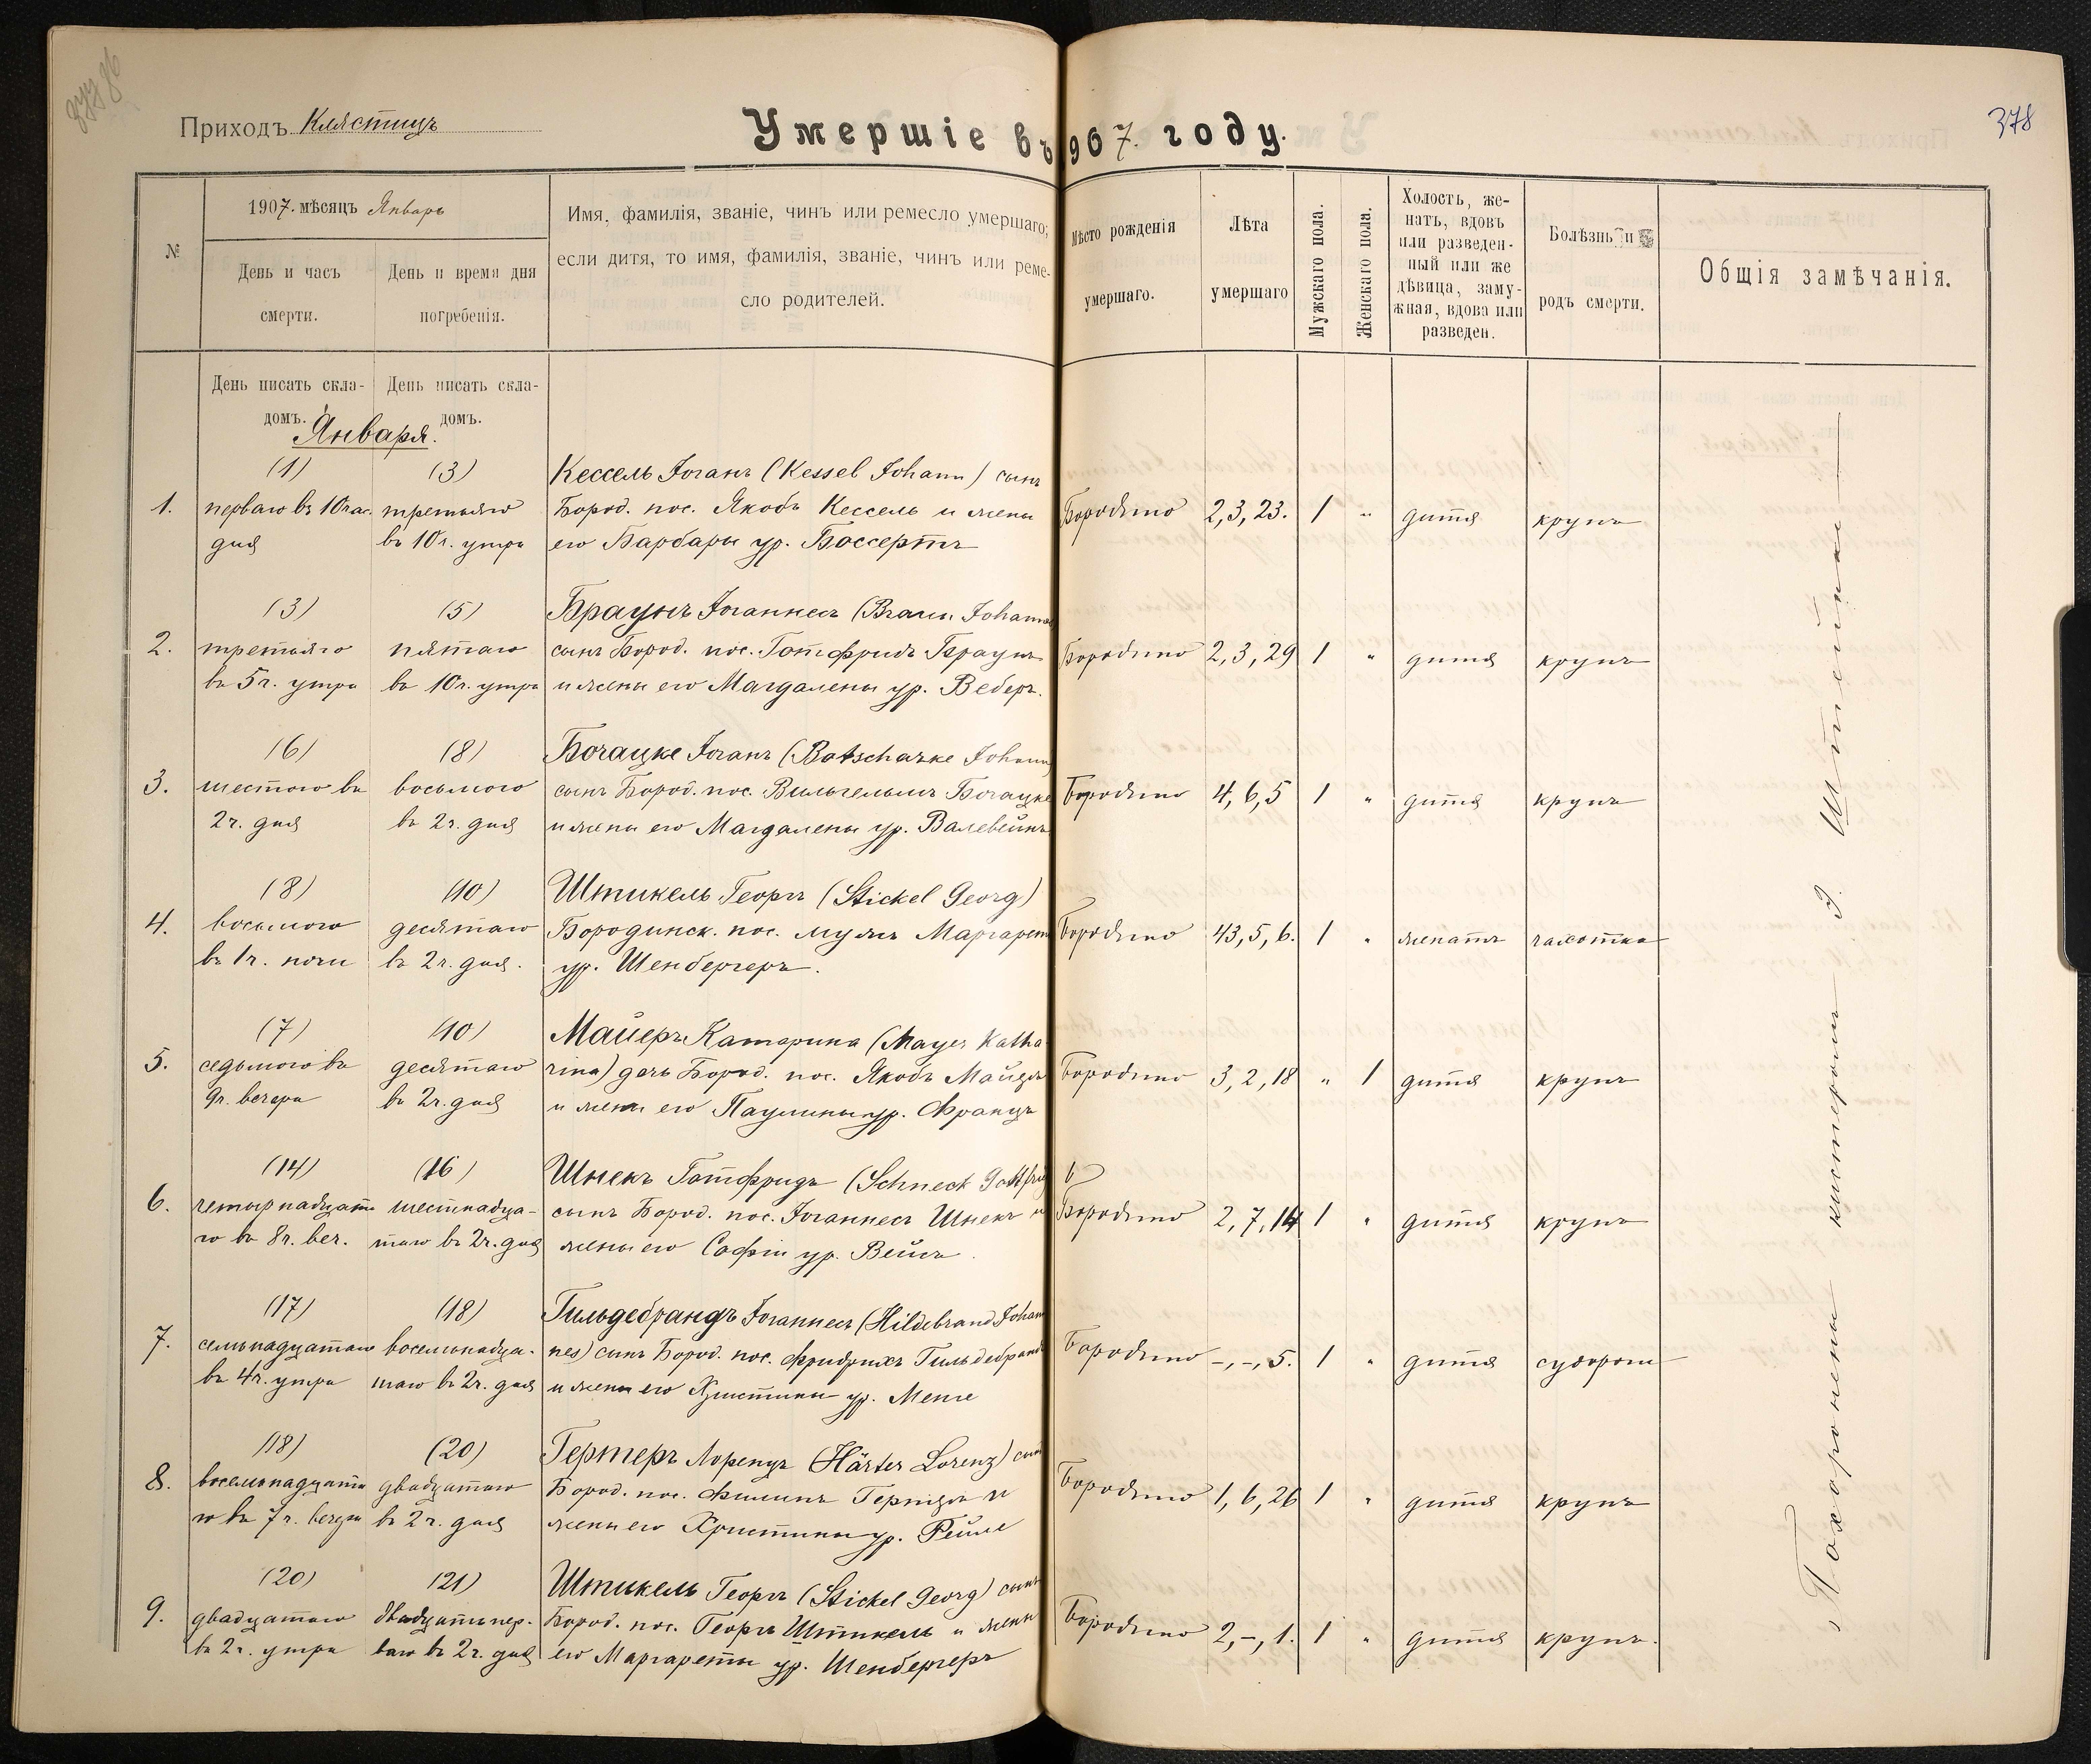 Приходъ Клястицъ
Умершіе въ 1907. году.
378
№
1907. мѣсяцъ Январь
День и часъ смерти.
День и время дня погребенія.
Имя, фамилія, званіе, чинъ или ремесло умершаго;
если дитя, то имя, фамилія, званіе, чинъ или реме-
сло родителей.
Мѣсто рожденія
умершаго.
Лѣта
умершаго
Мужскаго пола.
Женскаго пола.
Холостъ, же-
натъ, вдовъ
или разведен-
ный или же
дѣвица, заму-
жная, вдова или
разведен.
Болѣзнь и
родъ смерти.
Общія замѣчанія.
День писать скла-
домъ.
День писать скла-
домъ.
Января.
(1) (3) Кессель Іоганъ (Kessel Johann) сынъ
1. перваго въ 10 час. третьяго Бород. пос. Якобъ Кессель и жены Бородино 2, 3, 23. 1 " дитя крупъ
дня въ 10 ч. утра его Барбары ур. Боссертъ
(3) (5) Браунъ Іоганнесъ (Braun Johannes
2. третьяго пятаго сынъ Бород. пос. Готфридъ Браунъ Бородино 2, 3, 29 1 " дитя крупъ
въ 5 ч. утра въ 10 ч. утра и жены его Магдалены ур. Веберъ.
(6) (8) Бочацке Іоганъ (Botschazke Johann)
3. шестого въ восьмого сынъ Бород. пос. Вильгельмъ Бочацке Бородино 4, 6, 5 1 " дитя крупъ
2 ч. дня въ 2 ч. дня и жены его Магдалены ур. Валевейнъ
(8) (10) Штикель Георгъ (Stickel Georg)
4. восьмого десятаго Бородинск. пос. мужъ Маргарет Бородино 43, 5, 6. 1 " женатъ чахотка
въ 1 ч. ночи въ 2 ч. дня. ур. Шенбергеръ.
(7) (10) Майеръ Катарина (Mayer Katha
5. седьмого въ десятаго rina) дочь Бород. пос. Якобъ Майеръ Бородино 3, 2, 18 " 1 дитя крупъ
9 ч. вечера въ 2 ч. дня и жены его Паулины ур. Францъ
(14) (16) Шнекъ Готфридъ (Schneck Gottfried)
6. четырнадцата шестнадца- сынъ Бород. пос. Іоганнесъ Шнекъ и Бородино 2, 7, 14 1 " дитя крупъ
го въ 8 ч. веч. таго въ 2 ч. дня жены его Софіи ур. Вейсъ.
(17) (18) Гильдебрандъ Іоганнесъ (Hildebrand Johan
7. семьнадцатаго восемьнадца- nes) сынъ Бород. пос. Фридрихъ Гильдебрандъ Бородино -, -, 5. 1 " дитя судороги
въ 4 ч. утра таго въ 2 ч. дня и жены его Христины ур. Менге
(18) (20) Гертеръ Лоренцъ (Härter Lorenz) сынъ
8. восемьнадцата двадцатаго Бород. пос. Филипъ Гертеръ и Бородино 1, 6, 26 1 " дитя крупъ
го въ 7 ч. вечера въ 2 ч. дня жены его Христины ур. Рейле
(20) (21) Штикель Георгъ (Stickel Georg) сынъ
9. двадцатаго двадцать пер- Бород. пос. Георгъ Штикель и жены Бородино 2, -, 1. 1 " дитя крупъ.
въ 2 ч. утра ваго въ 2 ч. дня его Маргареты ур. Шенбергеръ
Похоронены кистеромъ Э. Штейнке